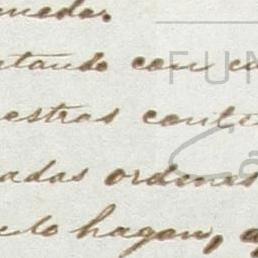 nuedo.
tando con
estras conte
adas ordenes
lo hagan,
FUN